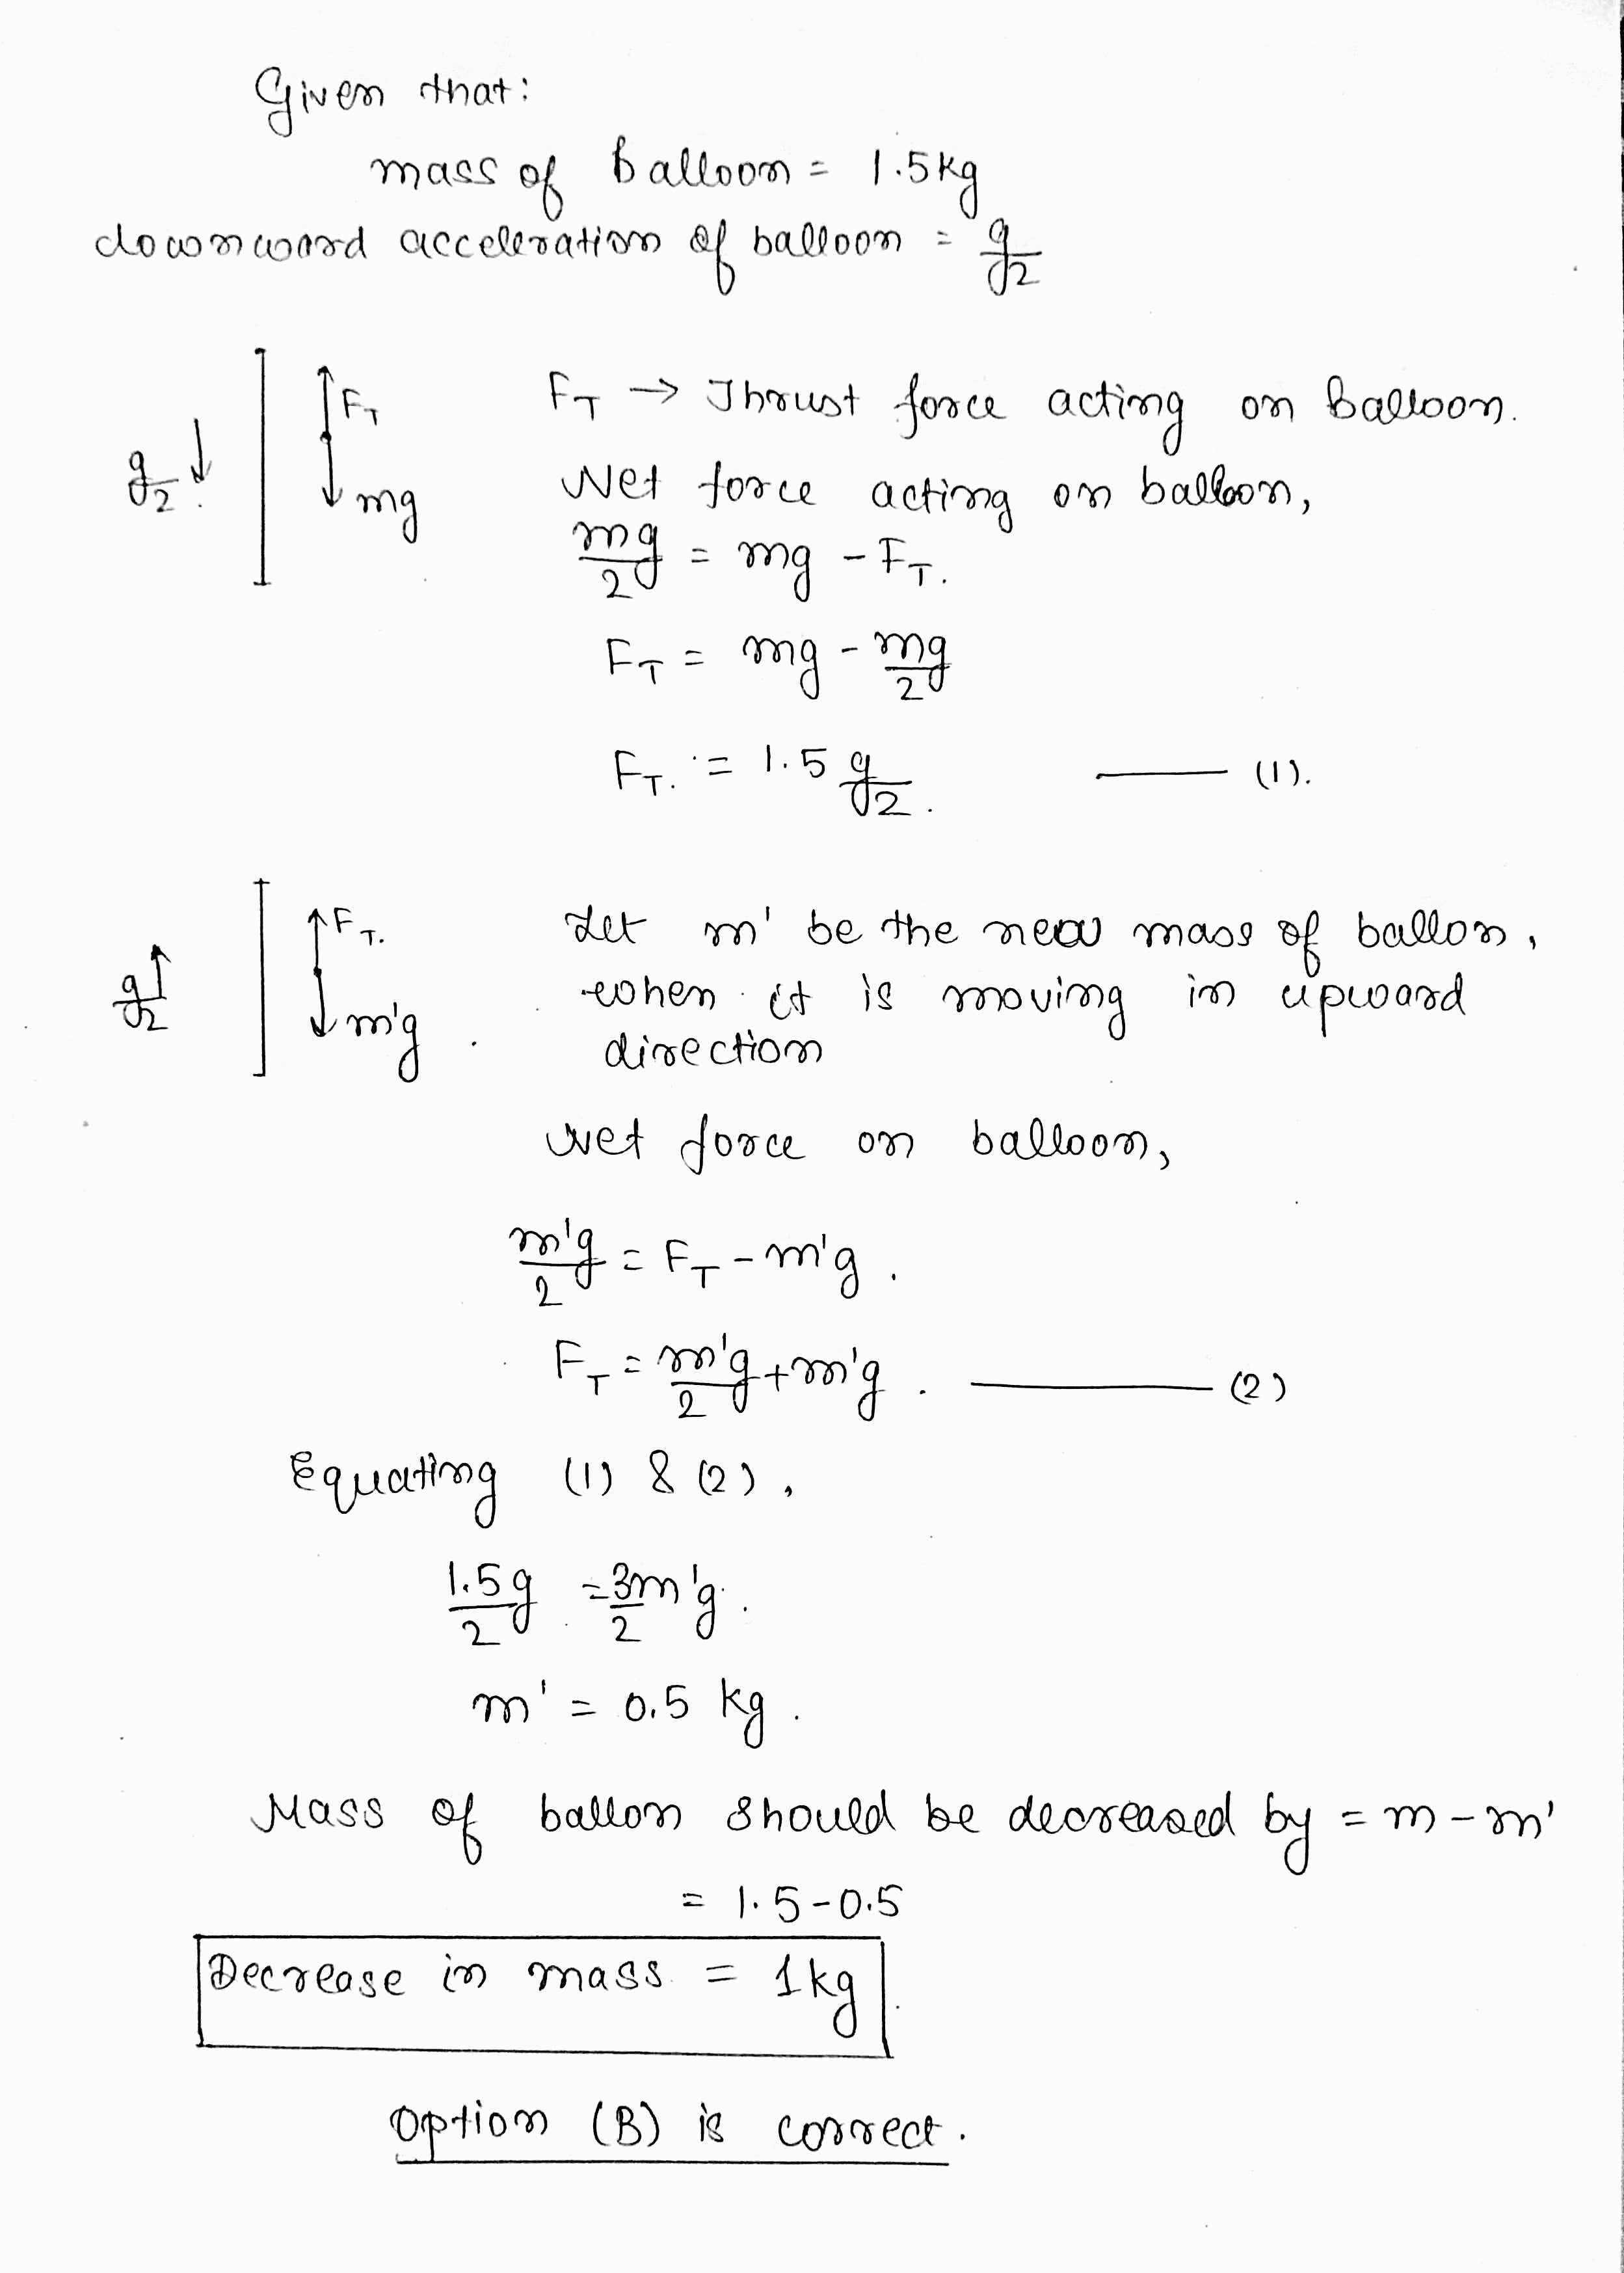 Given that:
mass of balloon = 1.5kg
downward acceleration of balloon = g/2
F_T
F_T → Thrust force acting on balloon.
g/2 ↓
mg
Net force acting on balloon,
mg/2 = mg - F_T.
F_T = mg - mg/2
F_T. = 1.5 g/2. —— (1).
F_T.
Let m' be the new mass of ballon,
g/2 ↑
m'g.
when it is moving in upward
direction
Net force on balloon,
m'g/2 = F_T - m'g.
F_T = m'g/2 + m'g. —— (2)
Equating (1) & (2),
1.5g/2 = 3m'g/2.
m' = 0.5 kg.
Mass of ballon should be decreased by = m - m'
= 1.5 - 0.5
Decrease in mass = 1kg.
Option (B) is correct.